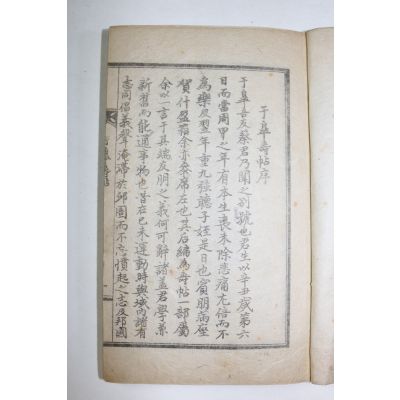 于皐壽帖序
于皐吾友蔡君乃聞之別號也君生以辛丑歲第六
日而當周甲之年有本生喪未除悲痛尤倍而不
爲樂及翌年重九強聽子姪是日也賓朋滿座
賀什盈箱余亦參席左也其后編爲壽帖一部屬
余以一言于其端友朋之義何可辭諸蓋君學兼
新舊而能通事物也昔在己未運動時與域內諸有
志同倡義聲淹滯於邱園而不忘憤起之志及邦國